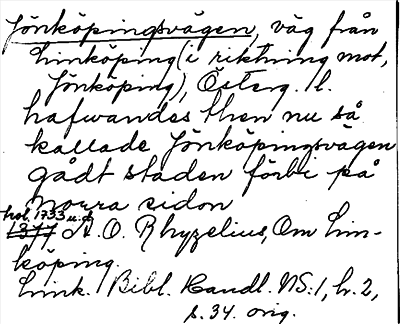 Jönköpingsvägen, väg från
Linköping (i riktning mot,
Jönköping), Österg. l.
hafwandes then nu så
kallade Jönköpingsvägen
gådt staden förbi på
norra sidon
hol. 1733 u. d.
1377 A. O. Rhyzelius, Om Lin-
köping.
Link. Bibl. Handl. NS: 1, h. 2,
s. 34. orig.